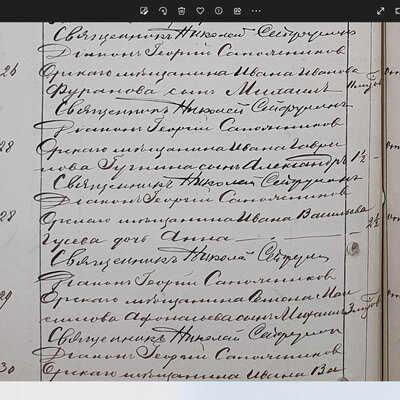 Священникъ Николай Сейфулинъ
Діаконъ Георгій Сапожниковъ
26 Орскаго мѣщанина Ивана Иванова
Фуранова сынъ Михаилъ
Священникъ Николай Сейфулинъ
Діаконъ Георгій Сапожниковъ
28 Орскаго мѣщанина Ивана Гаври
лова сынъ Александръ 1½
Священникъ Николай Сейфулинъ
Діаконъ Георгій Сапожниковъ
28 Орскаго мѣщанина Ивана Васильева
Гусева дочь Анна
Священникъ Николай Сейфулин
Діаконъ Георгій Сапожниковъ
29 Орскаго мѣщанина Семена Мак
симова Афонасьева сынъ Михаилъ
Священникъ Николай Сейфулин
Діаконъ Георгій Сапожниковъ
30 Орскаго мѣщанина Ивана Ва